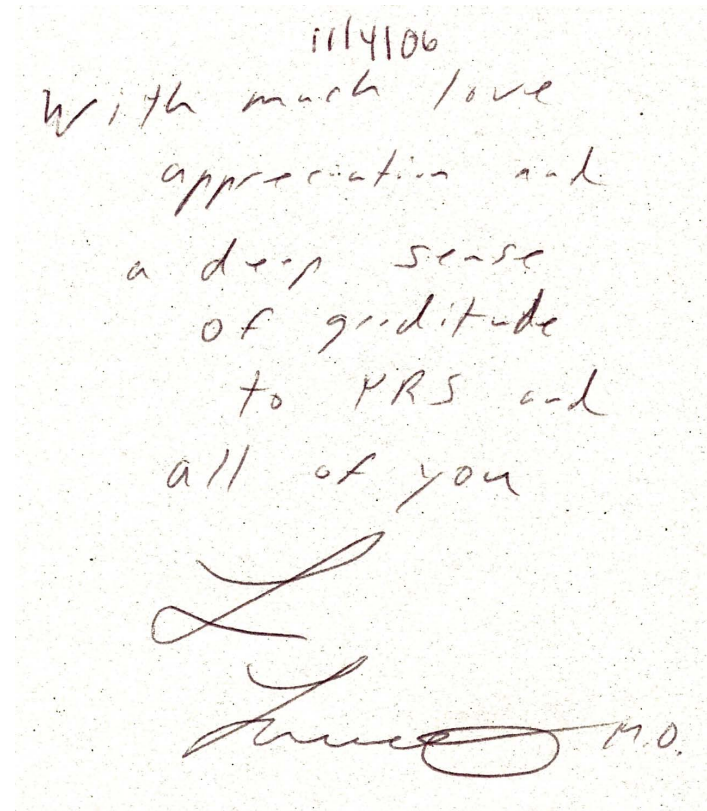 11/4/06
With much love
appreciation and
a deep sense
of graditude
to MRS and
all of you
L
M.D.